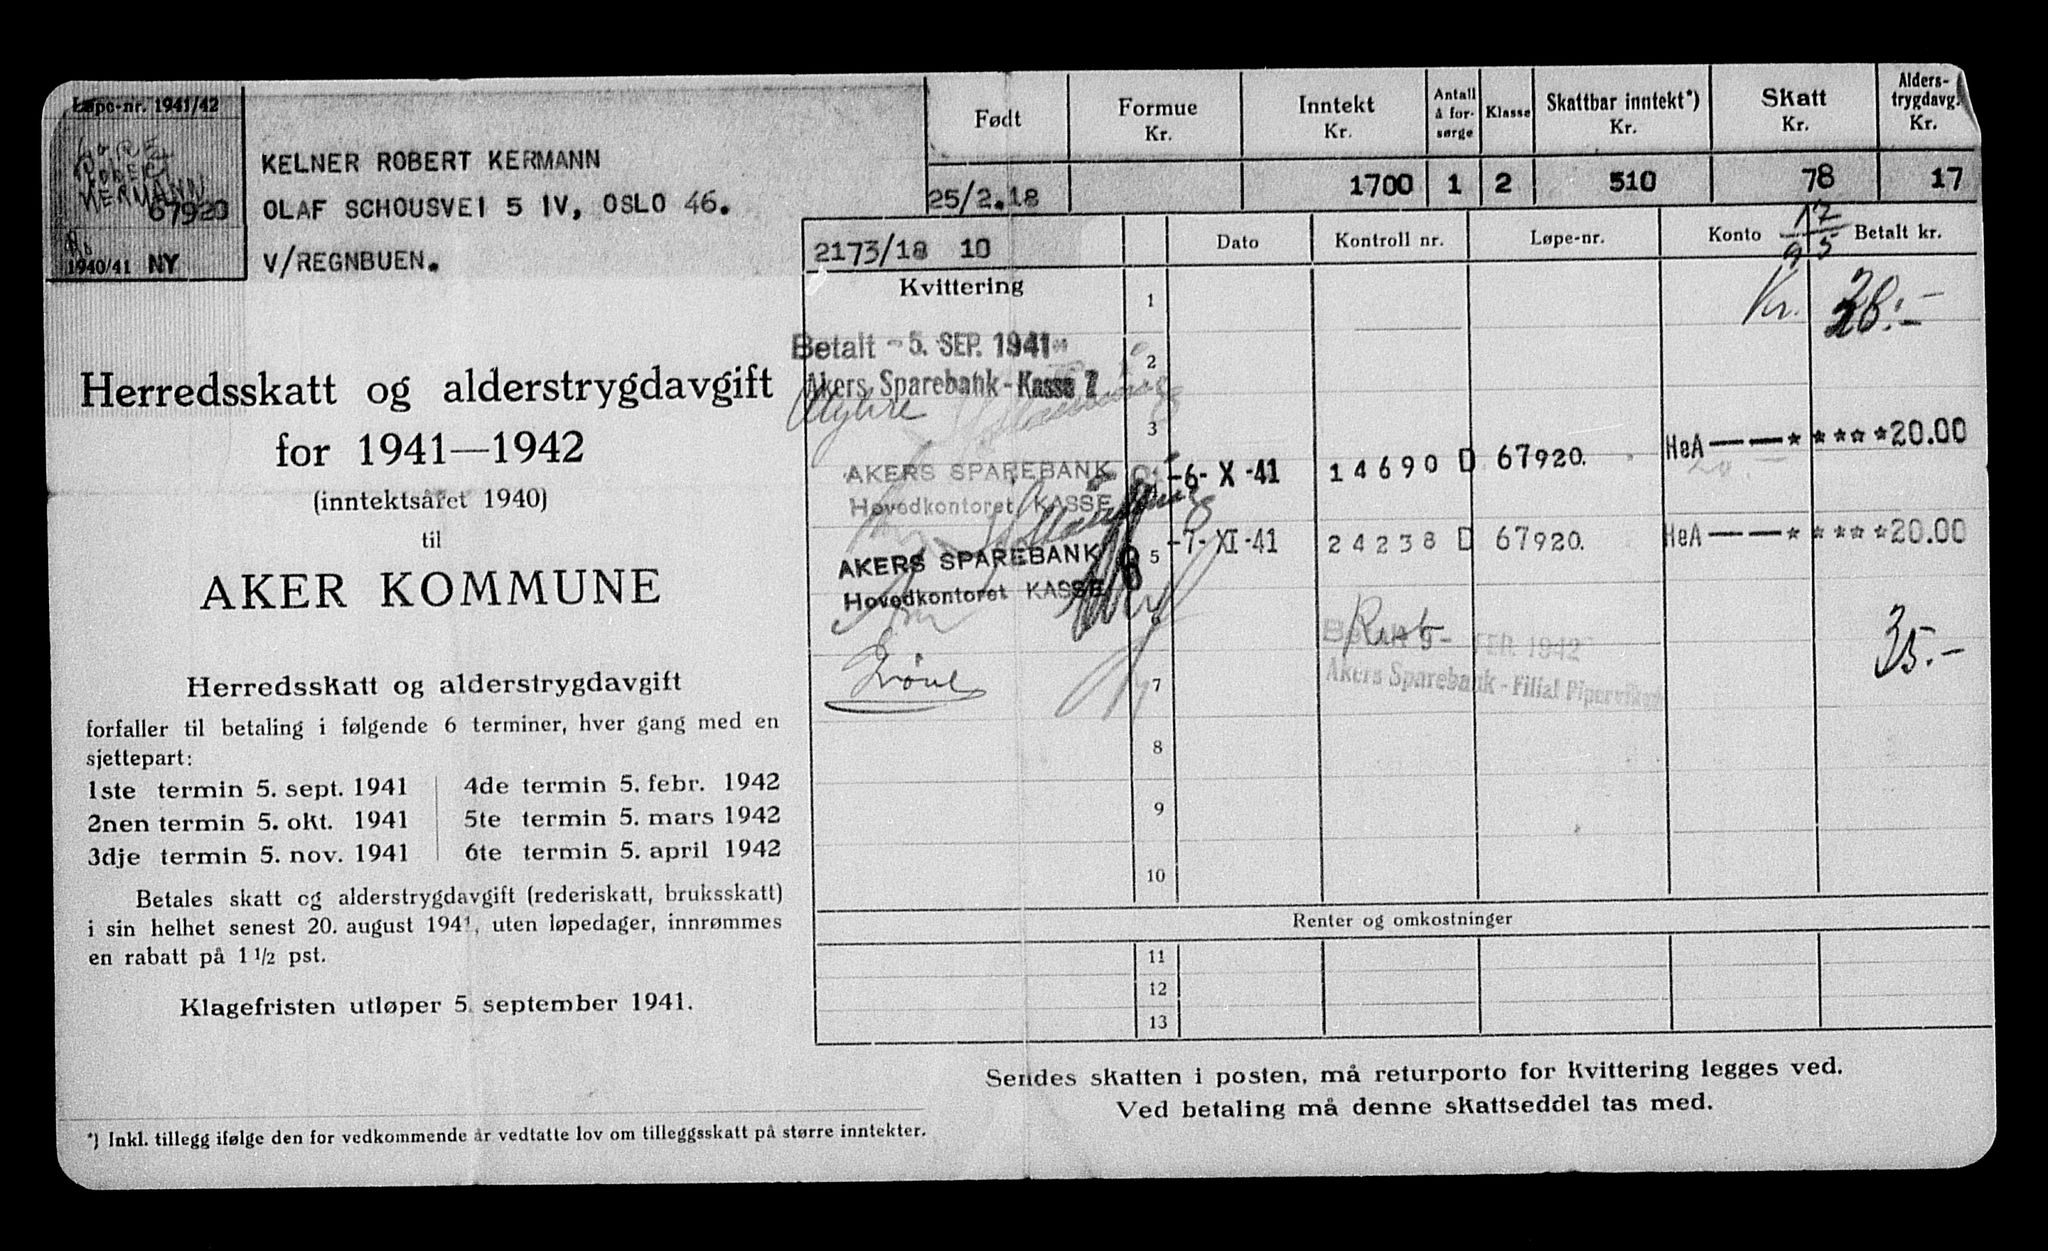 Løpe-nr. 1941/42
67920
1940/41 NY
KELNER ROBERT KERMANN
OLAF SCHOUSVEI 5 IV, OSLO 46.
V/REGNBUEN.
Født
25/2.18
Formue
Kr.
Inntekt
Kr.
1700
Antall
å for-
sørge
1
Klasse
2
Skattbar inntekt*)
Kr.
510
Skatt
Kr.
78
Alders-
trygdavg.
Kr.
17
2173/18 10
Dato
Kontroll nr.
Løpe-nr.
Konto
17/9 5
Betalt kr.
Kvittering
1
Kr. 20.-
Betalt - 5. SEP. 1941
2
Akers Sparebank - Kasse 7
3
AKERS SPAREBANK
Hovedkontoret KASSE
-6- X -41 14690 D 67920. HeA — — ★ ★ ★ ★ ★ 20.00
AKERS SPAREBANK
Hovedkontoret KASSE
5 -7- XI -41 24238 D 67920. HeA — — ★ ★ ★ ★ ★ 20.00
6
Rest
35.-
Betalt FEB. 1942
Akers Sparebank - Filial Pipervika
7
8
9
10
Renter og omkostninger
11
12
13
Sendes skatten i posten, må returporto for kvittering legges ved.
Ved betaling må denne skattseddel tas med.
Herredsskatt og alderstrygdavgift
for 1941—1942
(inntektsåret 1940)
til
AKER KOMMUNE
Herredsskatt og alderstrygdavgift
forfaller til betaling i følgende 6 terminer, hver gang med en
sjettepart:
1ste termin 5. sept. 1941
2nen termin 5. okt. 1941
3dje termin 5. nov. 1941
4de termin 5. febr. 1942
5te termin 5. mars 1942
6te termin 5. april 1942
Betales skatt og alderstrygdavgift (rederiskatt, bruksskatt)
i sin helhet senest 20. august 1941, uten løpedager, innrømmes
en rabatt på 1 1/2 pst.
Klagefristen utløper 5. september 1941.
*) Inkl. tillegg ifølge den for vedkommende år vedtatte lov om tilleggsskatt på større inntekter.